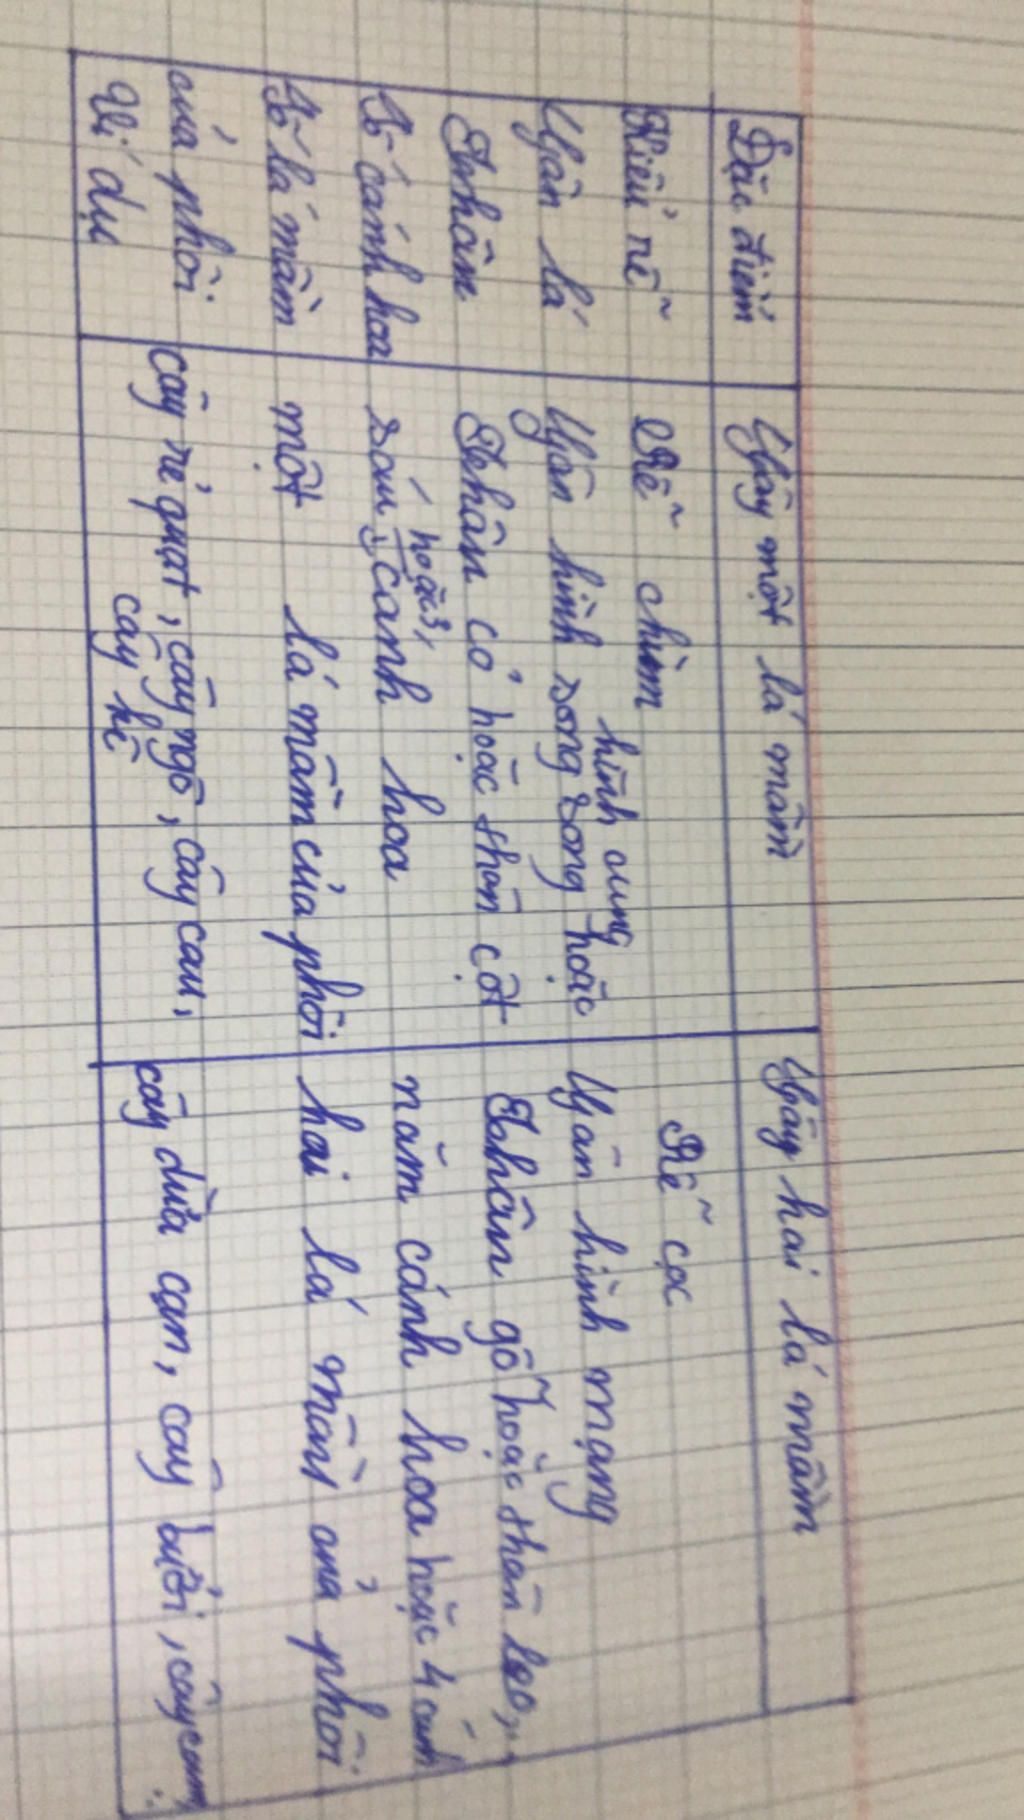 Đặc điểm Cây một lá mầm Cây hai lá mầm
Kiểu rễ Rễ chùm Rễ cọc
hình cung
Gân lá Gân hình song song hoặc Gân hình mạng
Thân Thân cỏ hoặc thân cột Thân gỗ hoặc thân leo,...
hoặc 3,
Số cánh hoa sáu cánh hoa năm cánh hoa hoặc 4 cánh
Số lá mầm một lá mầm của phôi hai lá mầm của phôi
của phôi
Ví dụ cây rẻ quạt, cây ngô, cây cau, cây dừa cạn, cây bưởi,
cây hẹ